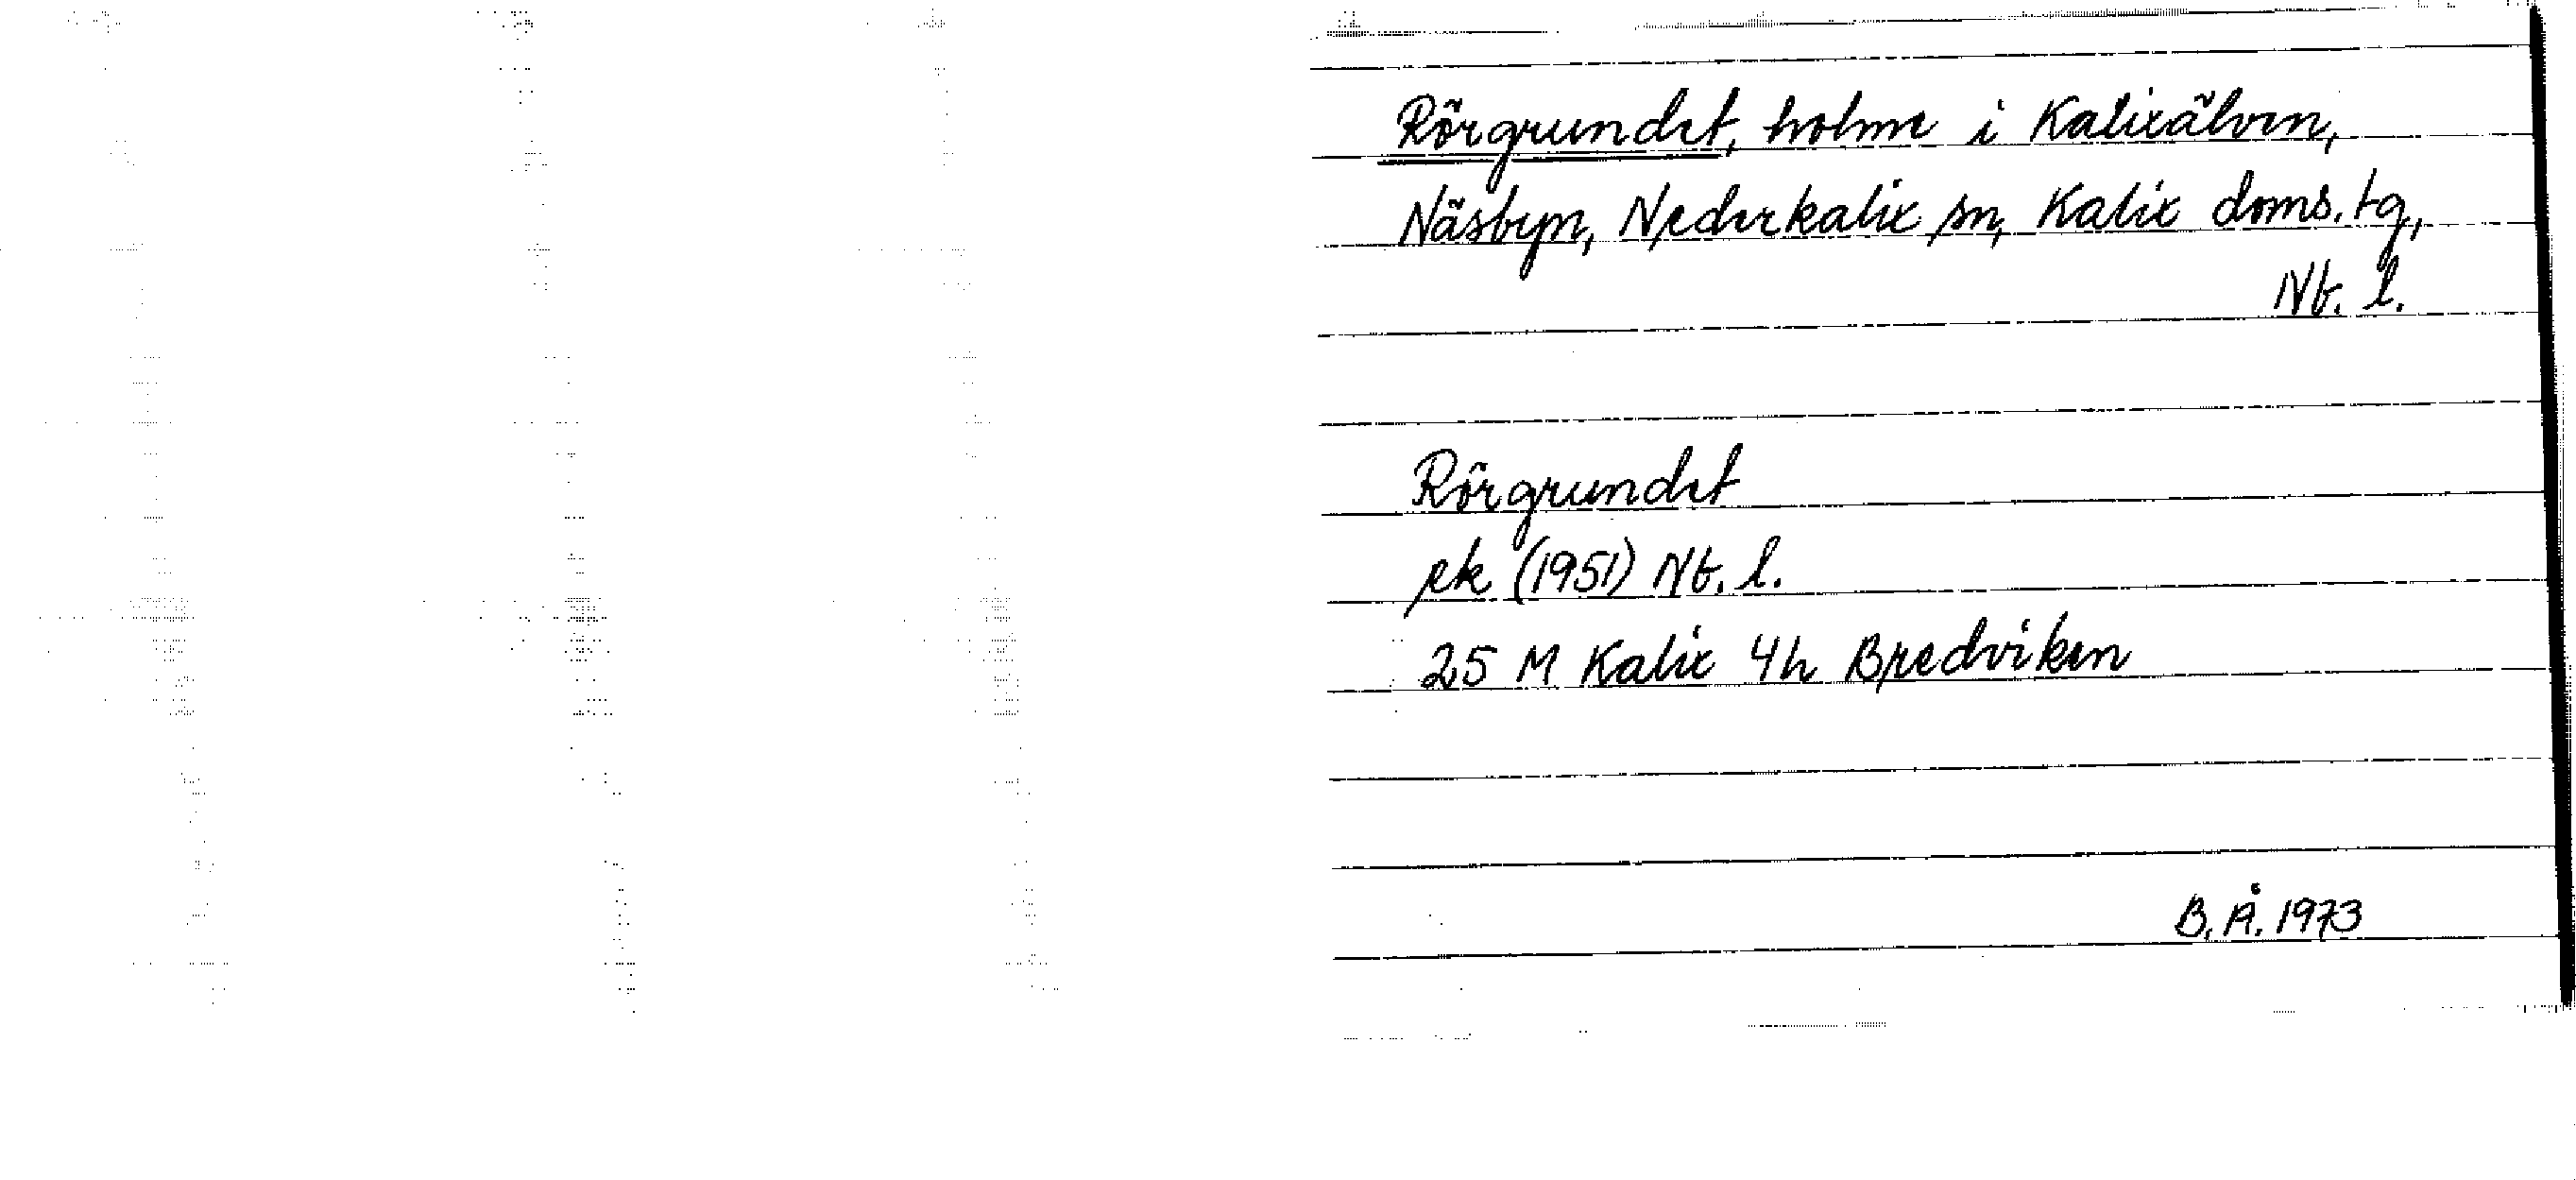 Rörgrundet, holme i Kalixälven,
Näsbyn, Nederkalix sn, Kalix doms. tg,
Nb. l.
Rörgrundet
ek (1951) Nb. l.
25 M Kalix 4h Bredviken
B.Å. 1973